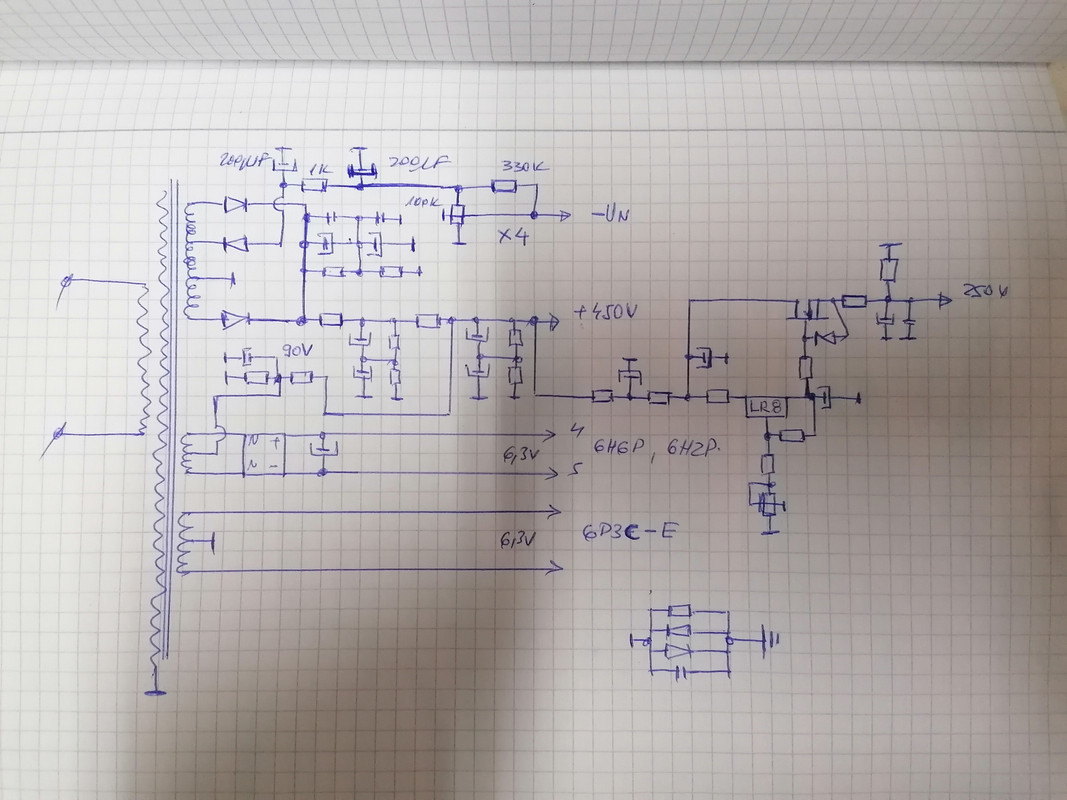 200µF
1K
200µF
330K
100K
-UN
X4
250V
+450V
90V
LR8
N +
N -
4
6,3V
6H6P, 6H2P.
5
6,3V
6P3C-E